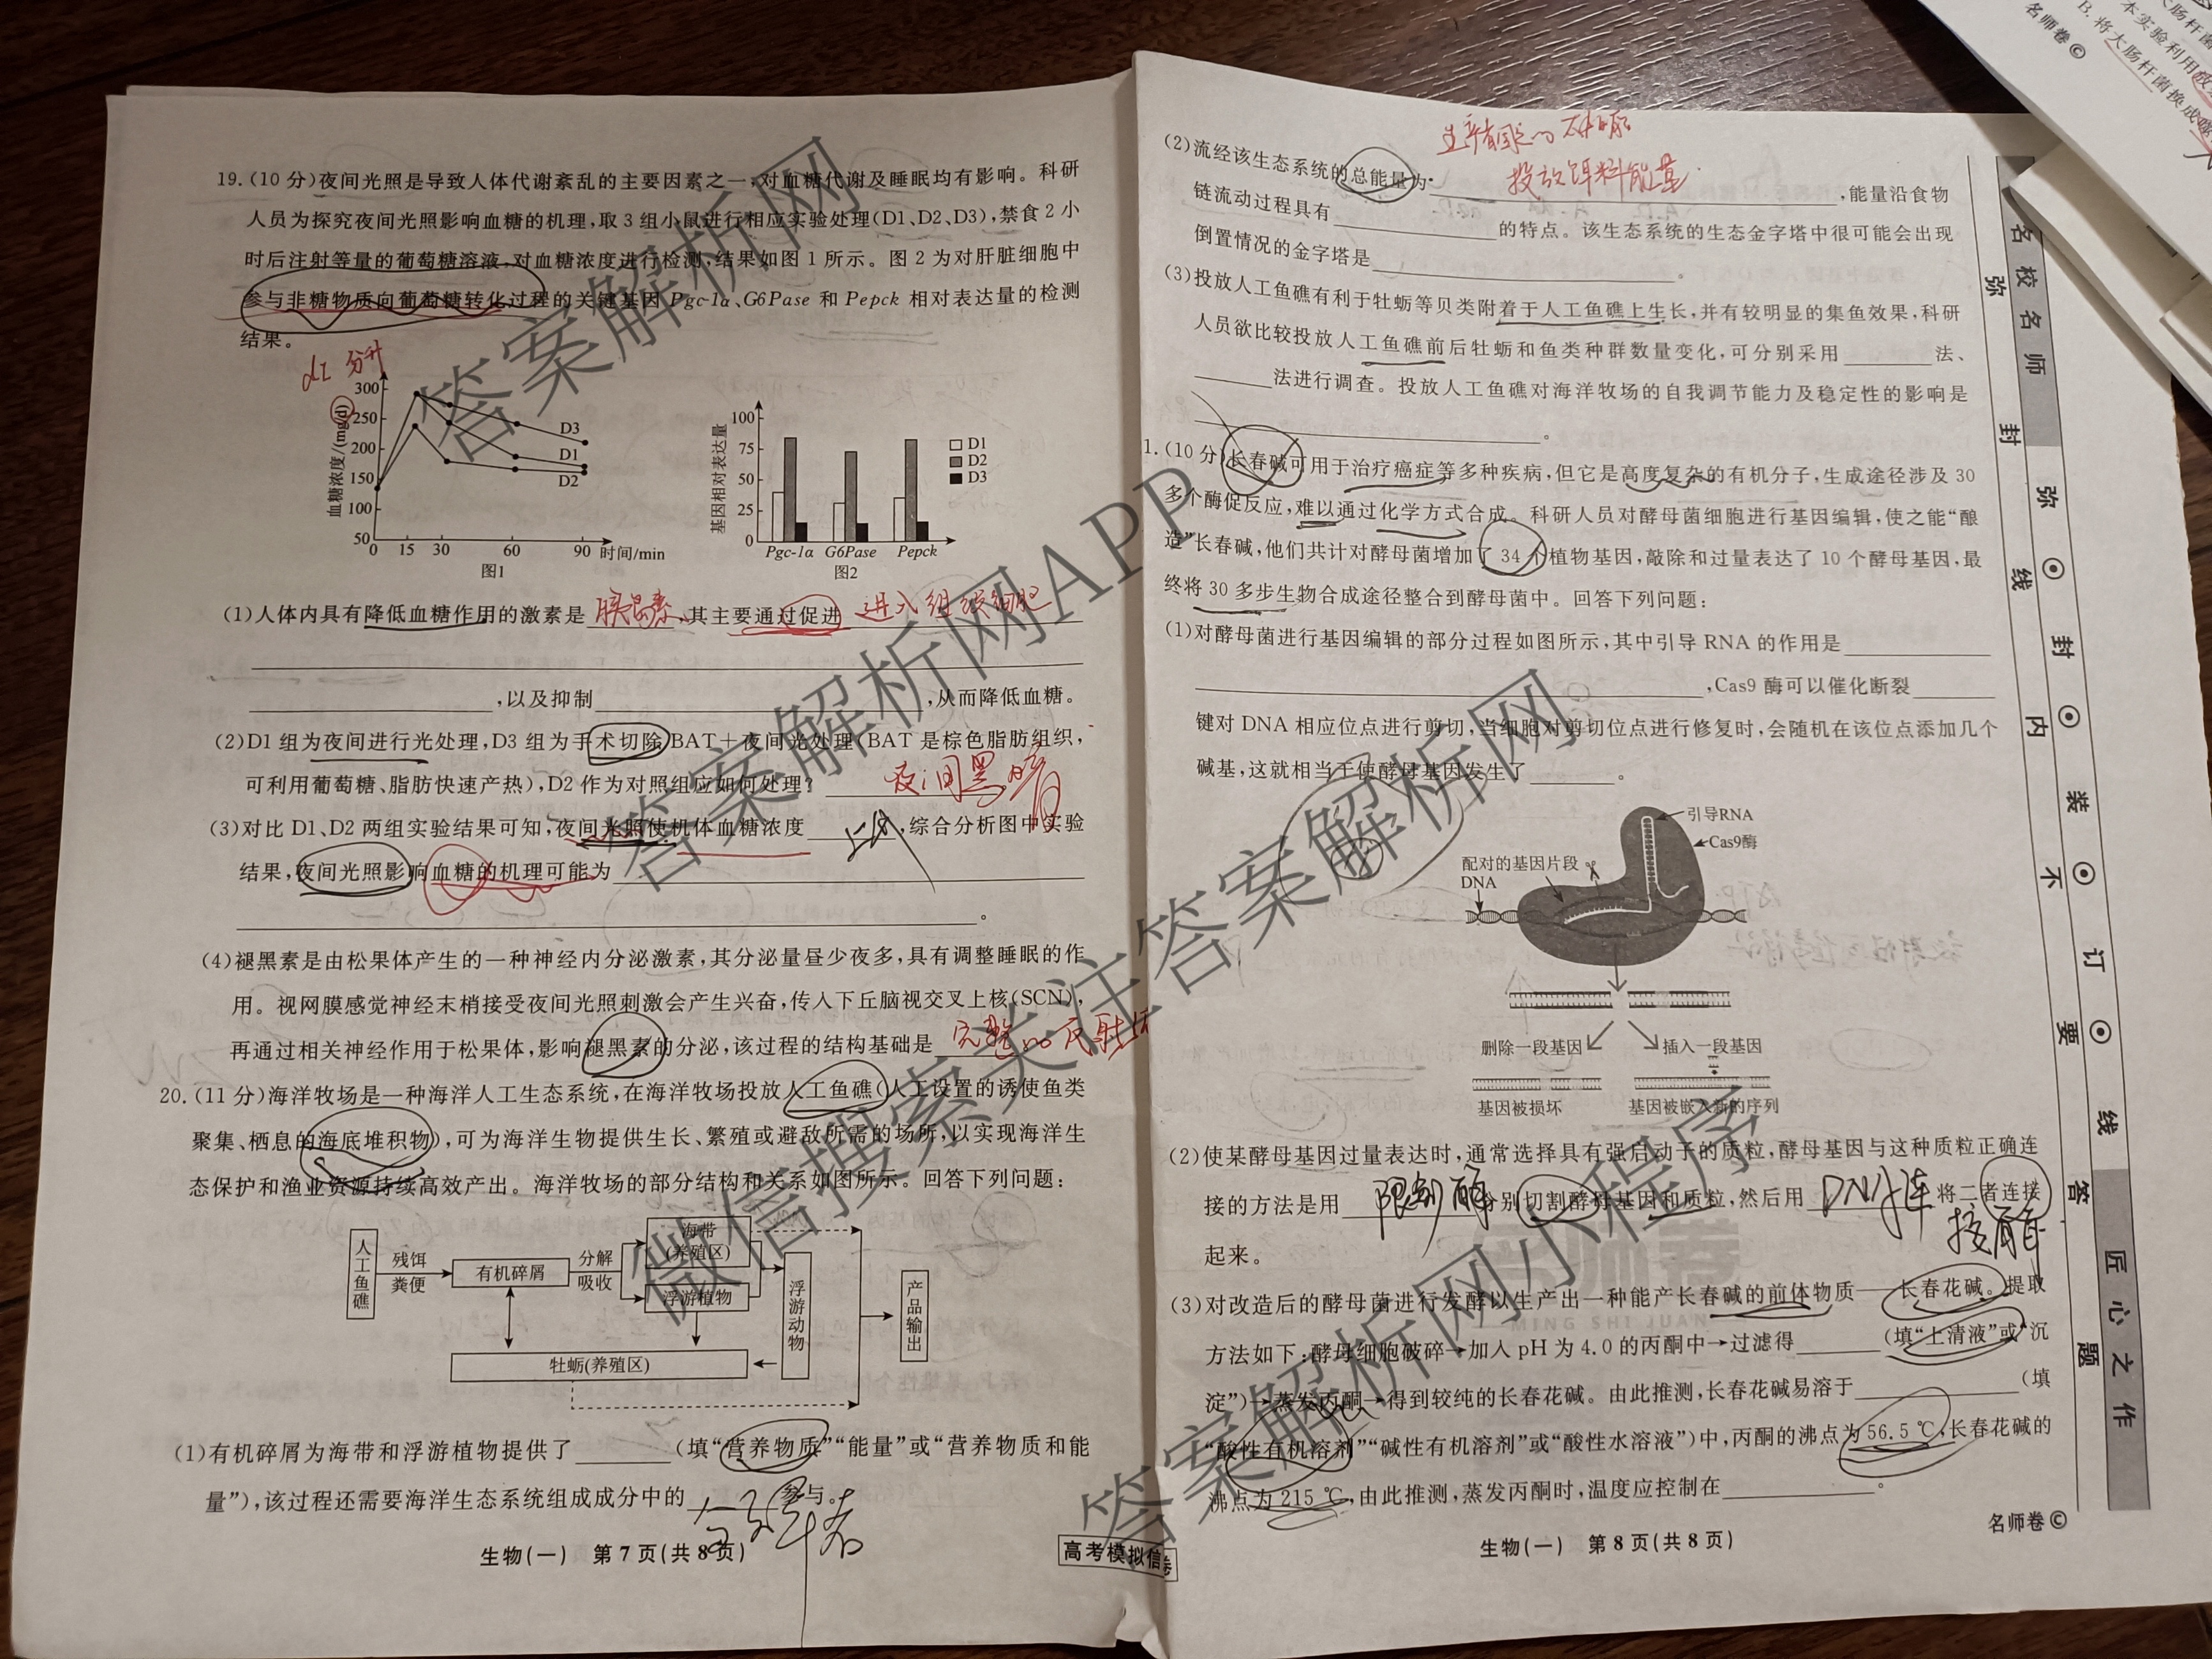 19.(10分)夜间光照是导致人体代谢紊乱的主要因素之一,对血糖代谢及睡眠均有影响。科研
人员为探究夜间光照影响血糖的机理,取3组小鼠进行相应实验处理(D1、D2、D3),禁食2小
时后注射等量的葡萄糖溶液,对血糖浓度进行检测,结果如图1所示。图2为对肝脏细胞中
参与非糖物质向葡萄糖转化过程的关键基因Pgc-1α、G6Pase和Pepck相对表达量的检测
结果。
dL 分升
血糖浓度/(mg/dl)
300
250
200
150
100
50
0 15 30 60 90 时间/min
D3
D1
D2
图1
基因相对表达量
100
75
50
25
0
Pgc-1α G6Pase Pepck
D1
D2
D3
图2
(1)人体内具有降低血糖作用的激素是 胰岛素 ,其主要通过促进 进入组织细胞
,以及抑制 ,从而降低血糖。
(2)D1组为夜间进行光处理,D3组为手术切除BAT+夜间光处理(BAT是棕色脂肪组织,
可利用葡萄糖、脂肪快速产热),D2作为对照组应如何处理? 夜间黑暗
(3)对比D1、D2两组实验结果可知,夜间光照使机体血糖浓度 上升 ,综合分析图中实验
结果,夜间光照影响血糖的机理可能为
。
(4)褪黑素是由松果体产生的一种神经内分泌激素,其分泌量昼少夜多,具有调整睡眠的作
用。视网膜感觉神经末梢接受夜间光照刺激会产生兴奋,传入下丘脑视交叉上核(SCN),
再通过相关神经作用于松果体,影响褪黑素的分泌,该过程的结构基础是 完整的反射弧
20.(11分)海洋牧场是一种海洋人工生态系统,在海洋牧场投放人工鱼礁(人工设置的诱使鱼类
聚集、栖息的海底堆积物),可为海洋生物提供生长、繁殖或避敌所需的场所,以实现海洋生
态保护和渔业资源持续高效产出。海洋牧场的部分结构和关系如图所示。回答下列问题:
人工鱼礁
残饵
粪便
有机碎屑
分解
吸收
海带
(养殖区)
浮游植物
浮游动物
产品输出
牡蛎(养殖区)
(1)有机碎屑为海带和浮游植物提供了 (填“营养物质”“能量”或“营养物质和能
量”),该过程还需要海洋生态系统组成成分中的 分解者 参与。
生物(一) 第7页(共8页)
高考模拟信息卷
(2)流经该生态系统的总能量为 生产者固定的太阳能
投放饵料能量 ,能量沿食物
链流动过程具有 的特点。该生态系统的生态金字塔中很可能会出现
倒置情况的金字塔是 。
(3)投放人工鱼礁有利于牡蛎等贝类附着于人工鱼礁上生长,并有较明显的集鱼效果,科研
人员欲比较投放人工鱼礁前后牡蛎和鱼类种群数量变化,可分别采用 法、
法进行调查。投放人工鱼礁对海洋牧场的自我调节能力及稳定性的影响是
。
1.(10分)长春碱可用于治疗癌症等多种疾病,但它是高度复杂的有机分子,生成途径涉及30
多个酶促反应,难以通过化学方式合成。科研人员对酵母菌细胞进行基因编辑,使之能“酿
造”长春碱,他们共计对酵母菌增加了34个植物基因,敲除和过量表达了10个酵母基因,最
终将30多步生物合成途径整合到酵母菌中。回答下列问题:
(1)对酵母菌进行基因编辑的部分过程如图所示,其中引导RNA的作用是
,Cas9酶可以催化断裂
键对DNA相应位点进行剪切,当细胞对剪切位点进行修复时,会随机在该位点添加几个
碱基,这就相当于使酵母基因发生了 。
引导RNA
Cas9酶
配对的基因片段
DNA
删除一段基因
插入一段基因
基因被损坏
基因被嵌入新的序列
(2)使某酵母基因过量表达时,通常选择具有强启动子的质粒,酵母基因与这种质粒正确连
接的方法是用 限制酶 分别切割酵母基因和质粒,然后用 DNA连接酶 将二者连接
起来。
(3)对改造后的酵母菌进行发酵以生产出一种能产长春碱的前体物质——长春花碱。提取
方法如下:酵母细胞破碎→加入pH为4.0的丙酮中→过滤得 (填“上清液”或“沉
淀”)→蒸发丙酮→得到较纯的长春花碱。由此推测,长春花碱易溶于 (填
“酸性有机溶剂”“碱性有机溶剂”或“酸性水溶液”)中,丙酮的沸点为56.5℃,长春花碱的
沸点为215℃,由此推测,蒸发丙酮时,温度应控制在 。
名师卷©
生物(一) 第8页(共8页)
名师卷
MING SHI JUAN
名校名师
匠心之作
弥封线内不要答题
弥封装订线
答案解析网
微信搜索关注答案解析网
答案解析网APP
答案解析网小程序
名师卷©
本实验利用放
B.将大肠杆菌换成